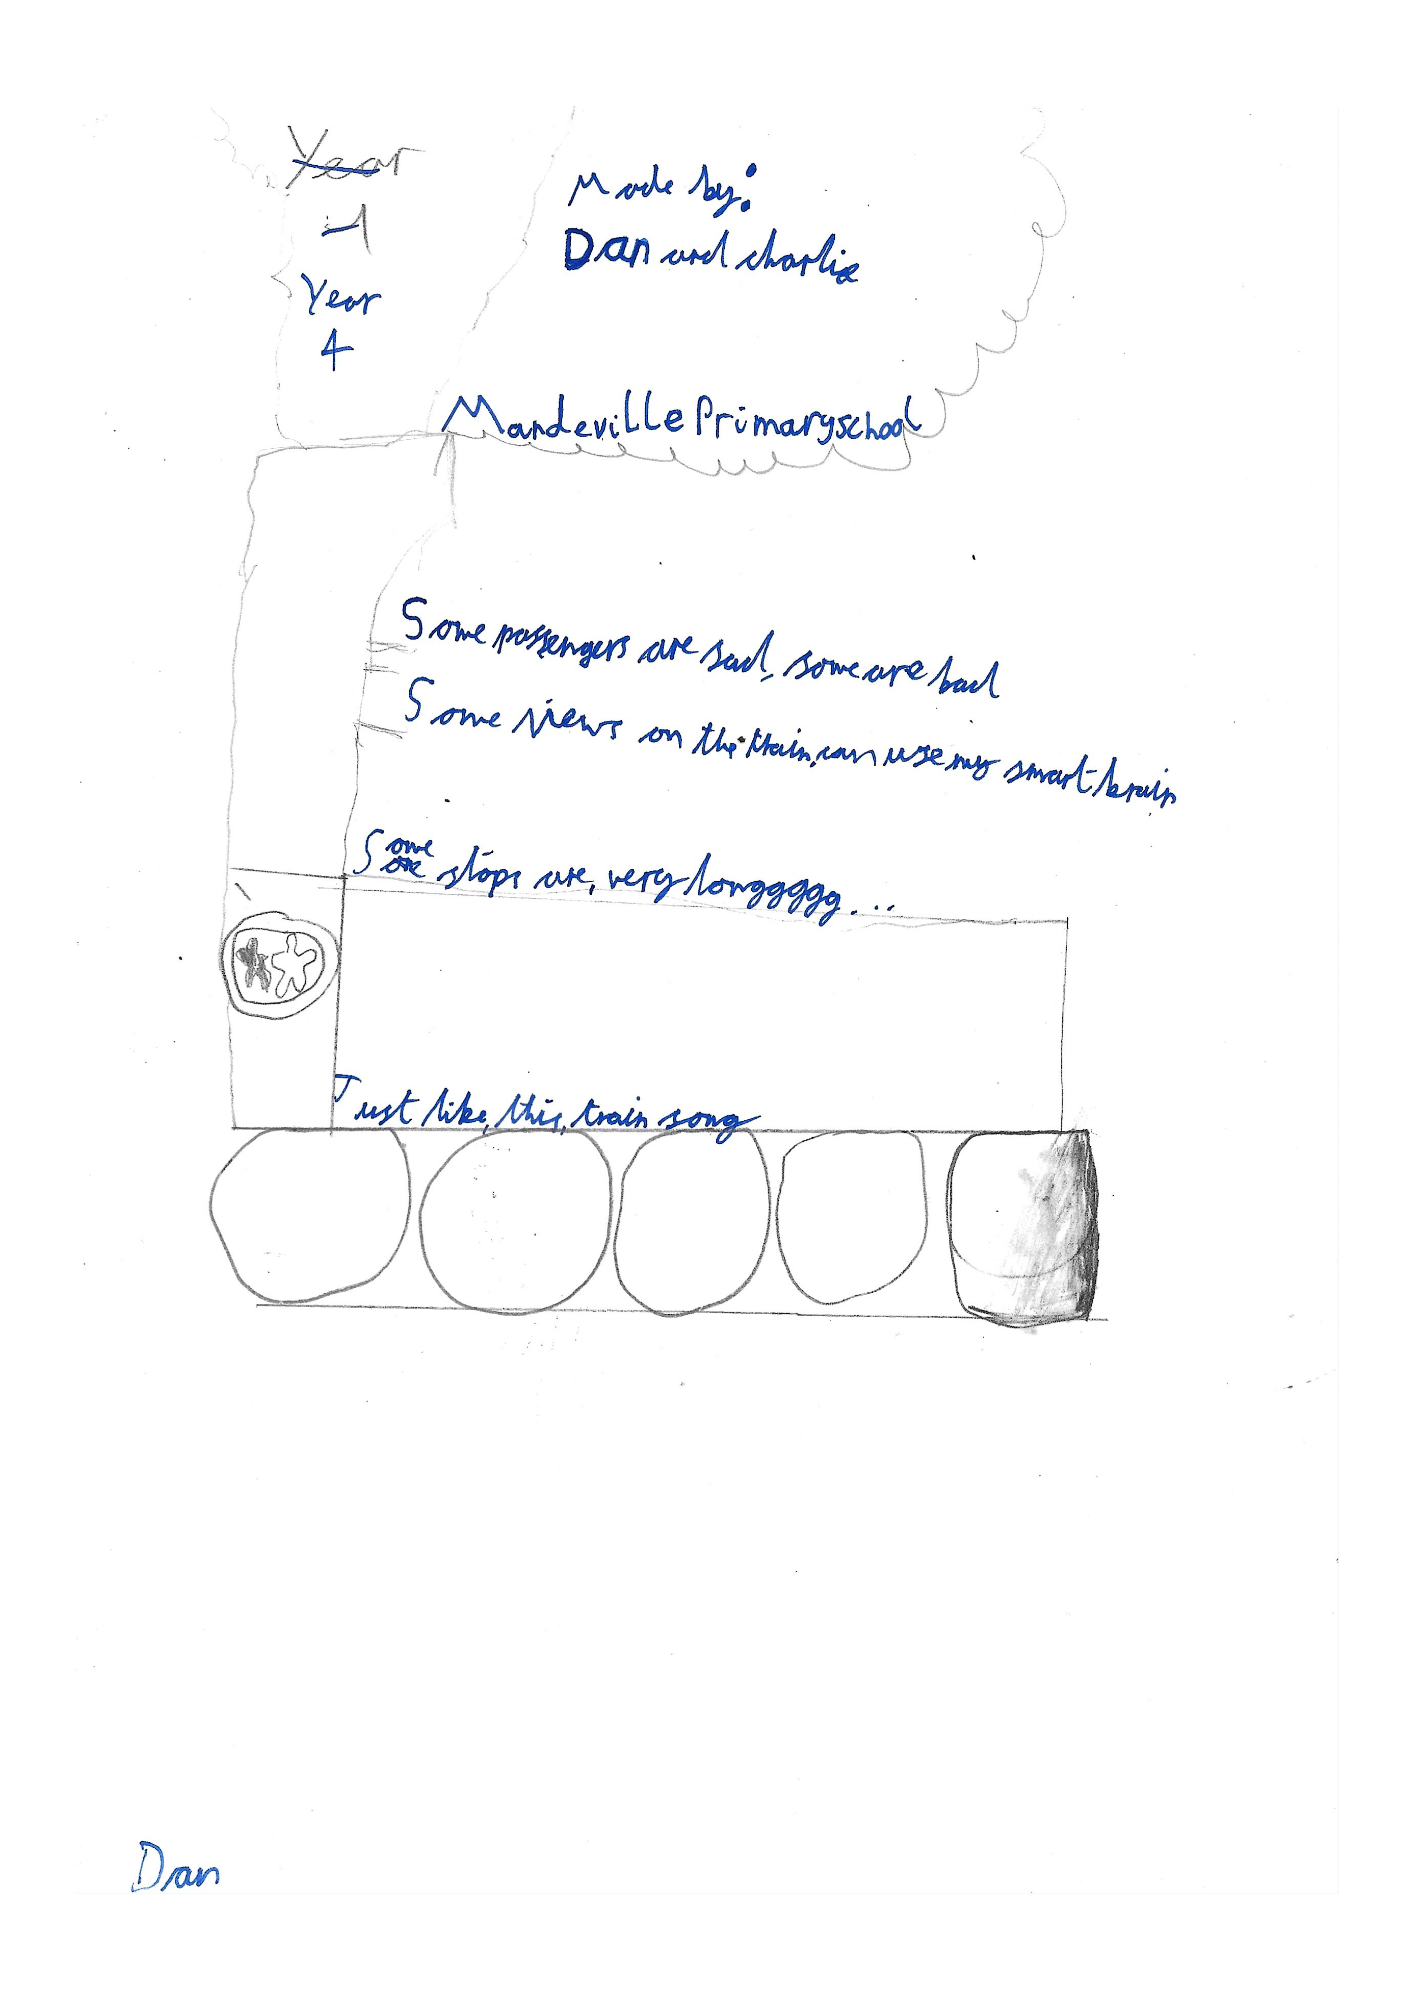 Year
4
Year
4
Made by:
Dan and charlie
Mandeville Primary school
Some passengers are sad, some are bad
Some views on the train, can use my smart brain
Some stops are, very longgggg...
Just like, this, train song
Dan